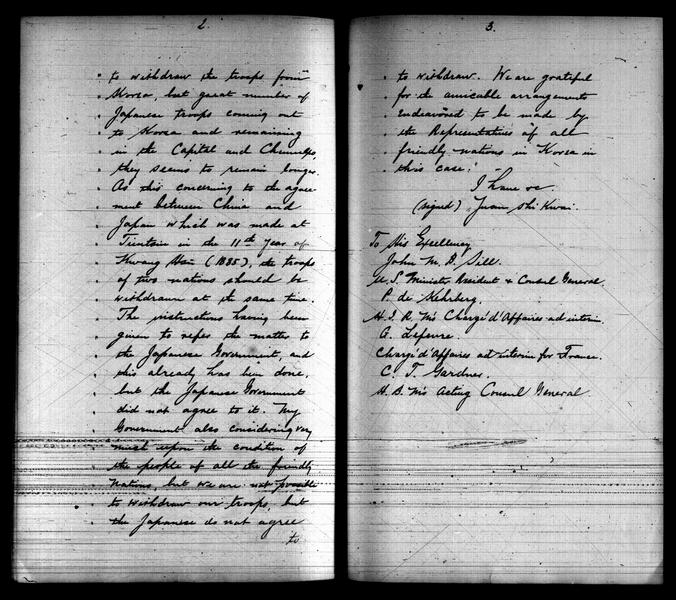 2.
" to withdraw the troops from
" Korea, but great number of
" Japanese troops coming out
" to Korea and remaining
" in the Capital and Chemulpo,
" they seems to remain longer.
" As this concerning to the agree-
" ment between China and
" Japan which was made at
" Tientsin in the 11th Year of
" Kwang Hsu (1885), the troops
" of two nations should be
" withdrawn at the same time.
" The instructions having been
" given to refer the matter to
" the Japanese Government, and
" this already has been done,
" but the Japanese Government
" did not agree to it. My
" Government also considering very
" much upon the condition of
" the people of all the friendly
" Nations, but we are not possible
" to withdraw our troops, but
" the Japanese do not agree
to
3.
" to withdraw. We are grateful
" for the amicable arrangements
" endeavored to be made by
" the Representatives of all
" friendly nations in Korea in
" this case."
I have &c
(signed) Yuan Shi Kwai.
To His Excellency
John M. B. Sill.
U.S. Minister Resident & Consul General.
P. de Kehrberg.
H.I.R.M's Chargé d'Affaires ad interim.
G. Lefevre.
Chargé d'Affaires ad interim for France.
C. T. Gardner.
H.B.M's Acting Consul General.